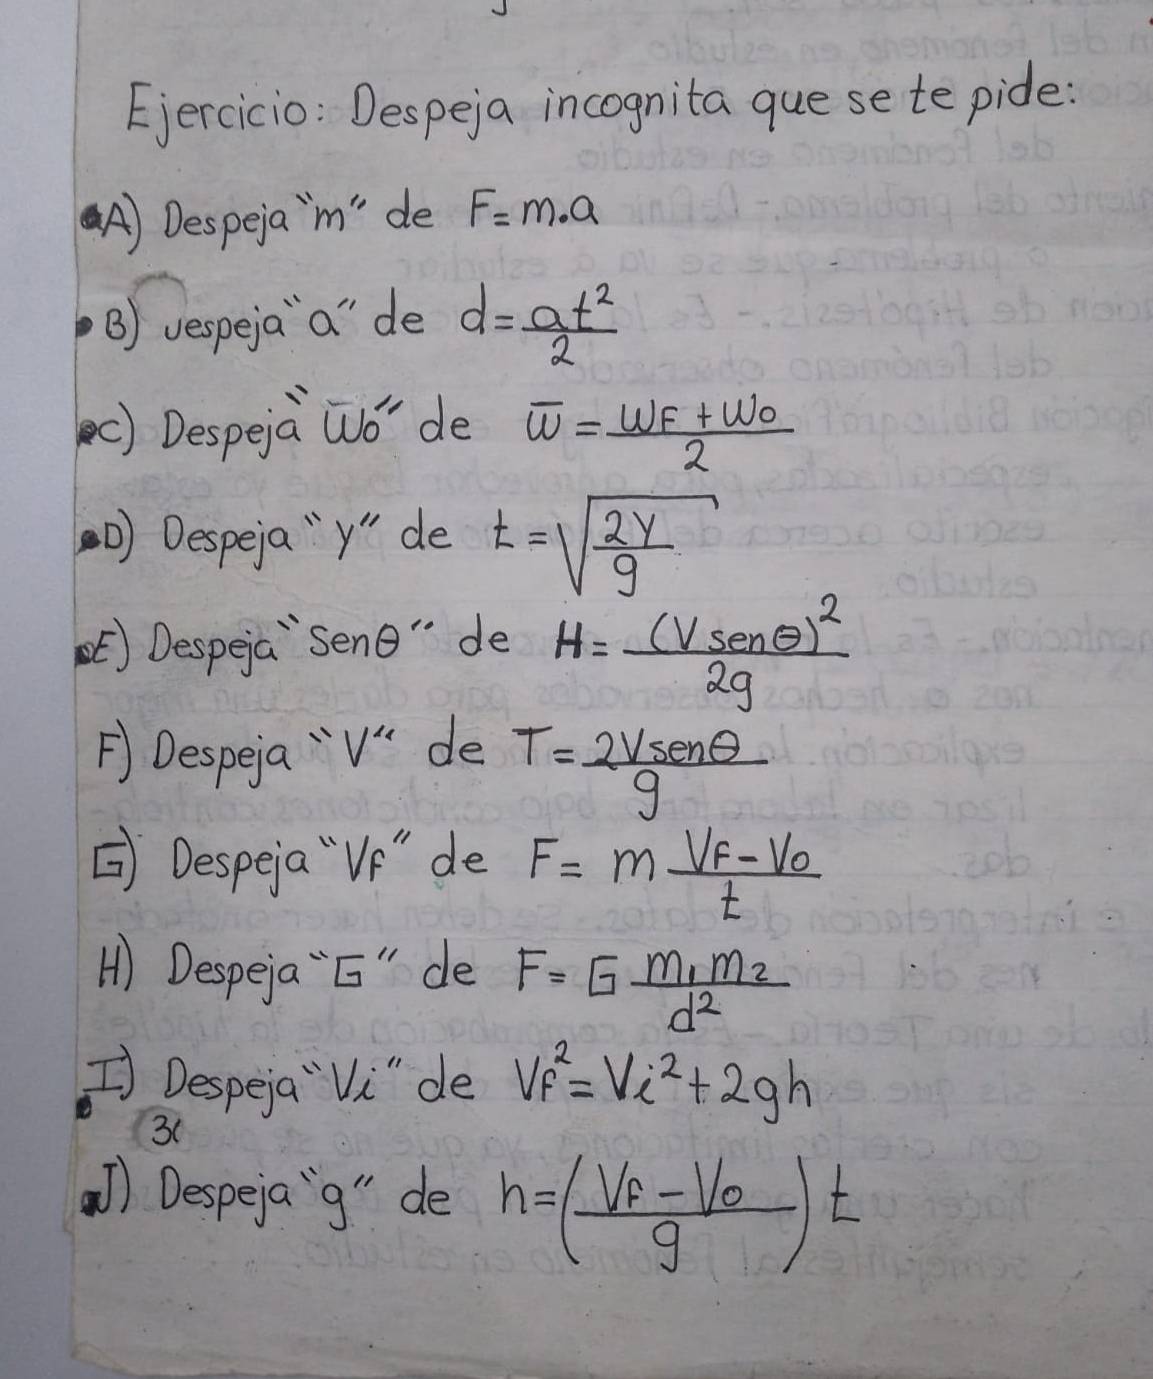 Ejercicio: Despeja incognita que se te pide:
A) Despeja "m" de F = m.a
B) Despeja "a" de d = at²/2
C) Despeja "W̅o" de W̅ = (WF + Wo)/2
D) Despeja "y" de t = √(2y/g)
E) Despeja "senθ" de H = (V senθ)²/2g
F) Despeja "V" de T = 2Vsenθ/g
G) Despeja "VF" de F = m (VF - Vo)/t
H) Despeja "G" de F = G m₁m₂/d²
I) Despeja "Vi" de VF² = Vi² + 2gh
J) Despeja "g" de h = ((VF - Vo)/g) t